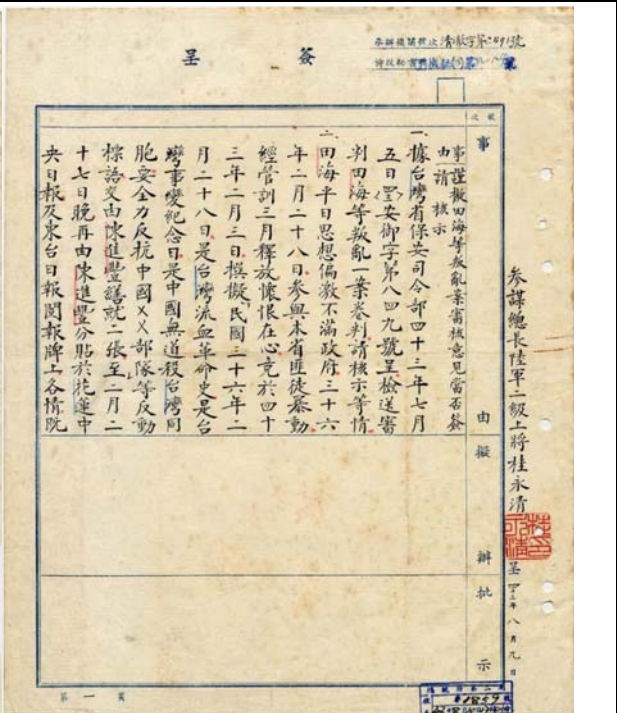 簽呈
承辦機關號次 清澈字第2491號
收次
事由
擬辦
批示
參謀總長陸軍二級上將桂永清
呈 四三年八月九日
事謹擬田海等叛亂案審核意見當否簽
由請 核示
一、據台灣省保安司令部四十三年七月
五日(四三)安御字第八四九號呈檢送審
判田海等叛亂一案卷判請核示等情
二、田海平日思想偏激不滿政府三十六
年二月二十八日參與本省匪徒暴動
經管訓三月釋放懷恨在心竟於四十
三年二月三日模擬「民國三十六年二
月二十八日是台灣流血革命史是台
灣事變紀念日是中國無道殺台灣同
胞妥全力反抗中國××部隊等反動
標語交由陳進豐繕就二張至二月二
十七日晚再由陳進豐分貼於花蓮中
央日報及東台日報閱報牌上各情既
第一頁
1859